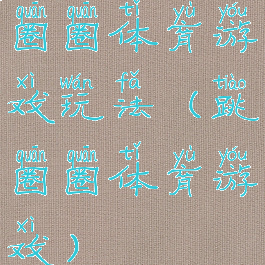 quān quān tǐ yù yóu
圈圈体育游
xì wán fǎ tiào
戏玩法（跳
quān quān tǐ yù yóu
圈圈体育游
xì
戏）